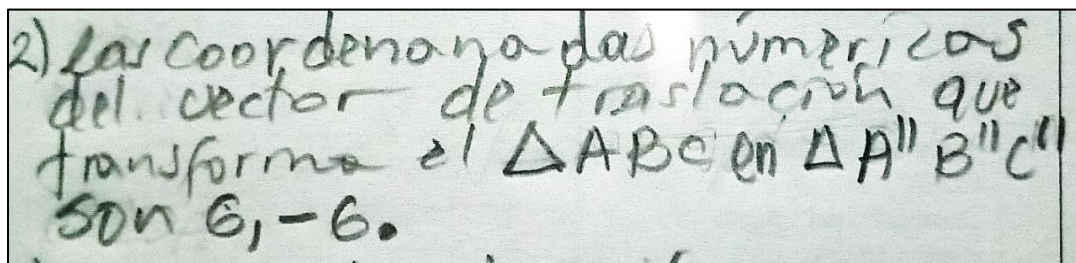 2) Las coordenanadas númericas
del vector de traslación que
transforma el △ABC en △A"B"C"
son 6,-6.